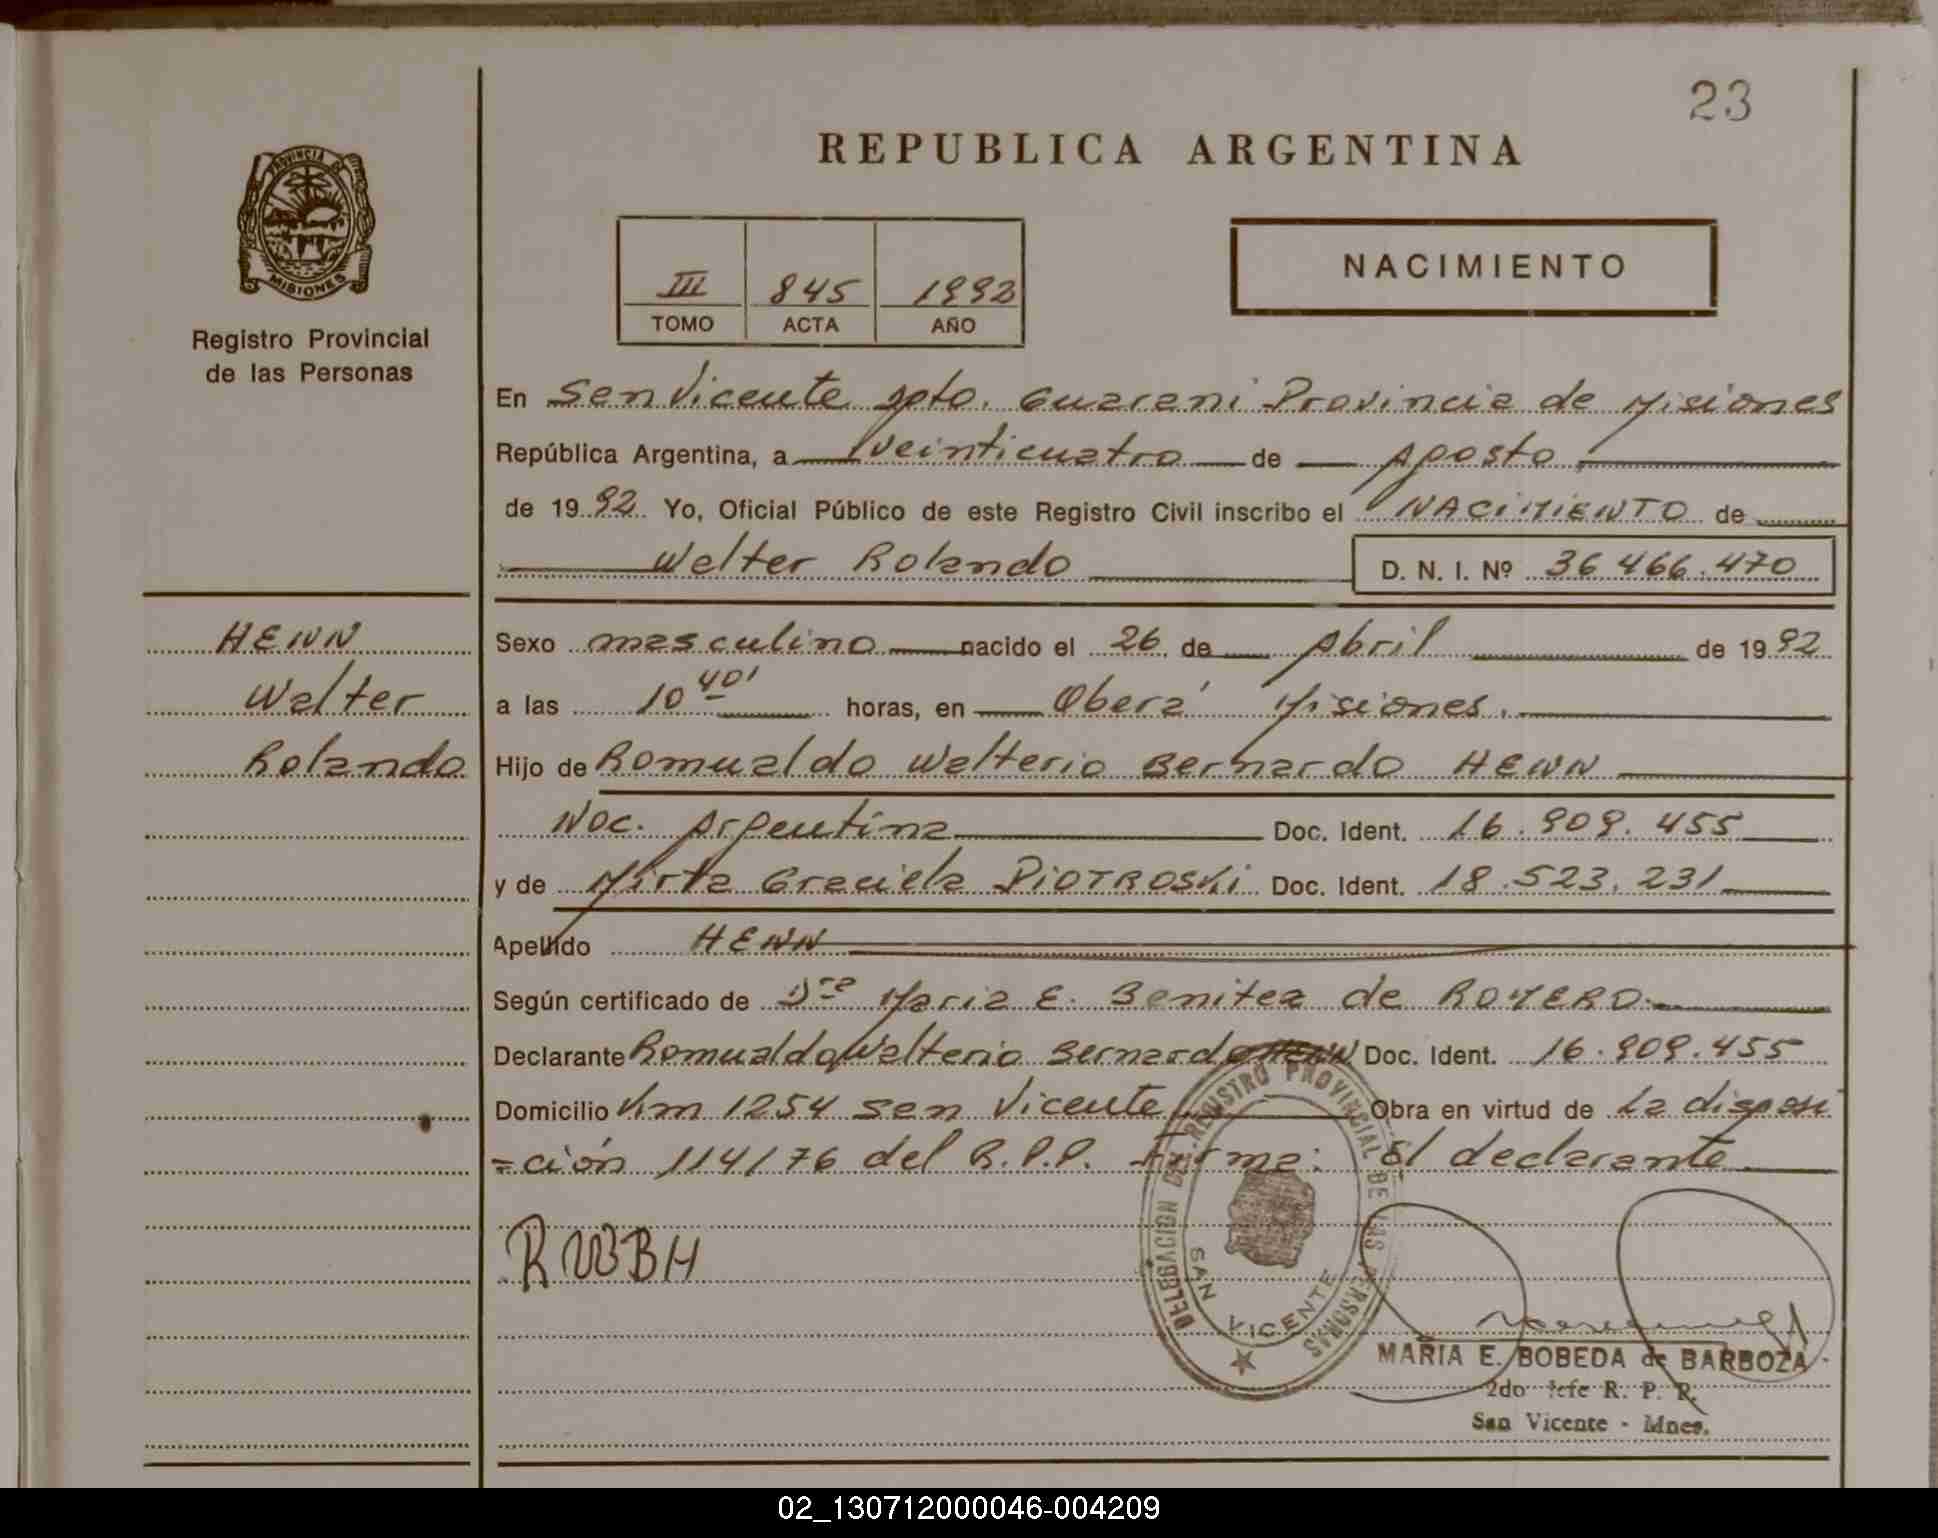 23
REPUBLICA ARGENTINA
PROVINCIA DE
MISIONES
Registro Provincial
de las Personas
III 845 1992
TOMO ACTA AÑO
NACIMIENTO
En San Vicente Dpto. Guarani Provincia de Misiones
República Argentina, a veinticuatro de Agosto
de 1992 Yo, Oficial Público de este Registro Civil inscribo el NACIMIENTO de
Walter Rolando D. N. I. Nº 36.466.470
HENN
Walter
Rolando
Sexo masculino nacido el 26 de Abril de 1992
a las 10 40' horas, en Oberá Misiones.
Hijo de Romualdo Walterio Bernardo HENN
Nac. Argentina Doc. Ident. 16.909.455
y de Mirta Graciela PIOTROSKi Doc. Ident. 18.523.231
Apellido HENN
Según certificado de Dra Maria E. Benitez de ROMERO
Declarante Romualdo Walterio Bernardo HENN Doc. Ident. 16.909.455
Domicilio Km 1254 San Vicente Obra en virtud de la disposi
=ción 114/76 del R.P.P. Firma: El declarante
RWBH
DELEGACION DEL REGISTRO PROVINCIAL DE LAS PERSONAS
SAN VICENTE
MARIA E. BOBEDA de BARBOZA
2do Jefe R. P. P.
San Vicente - Mnes.
02_130712000046-004209